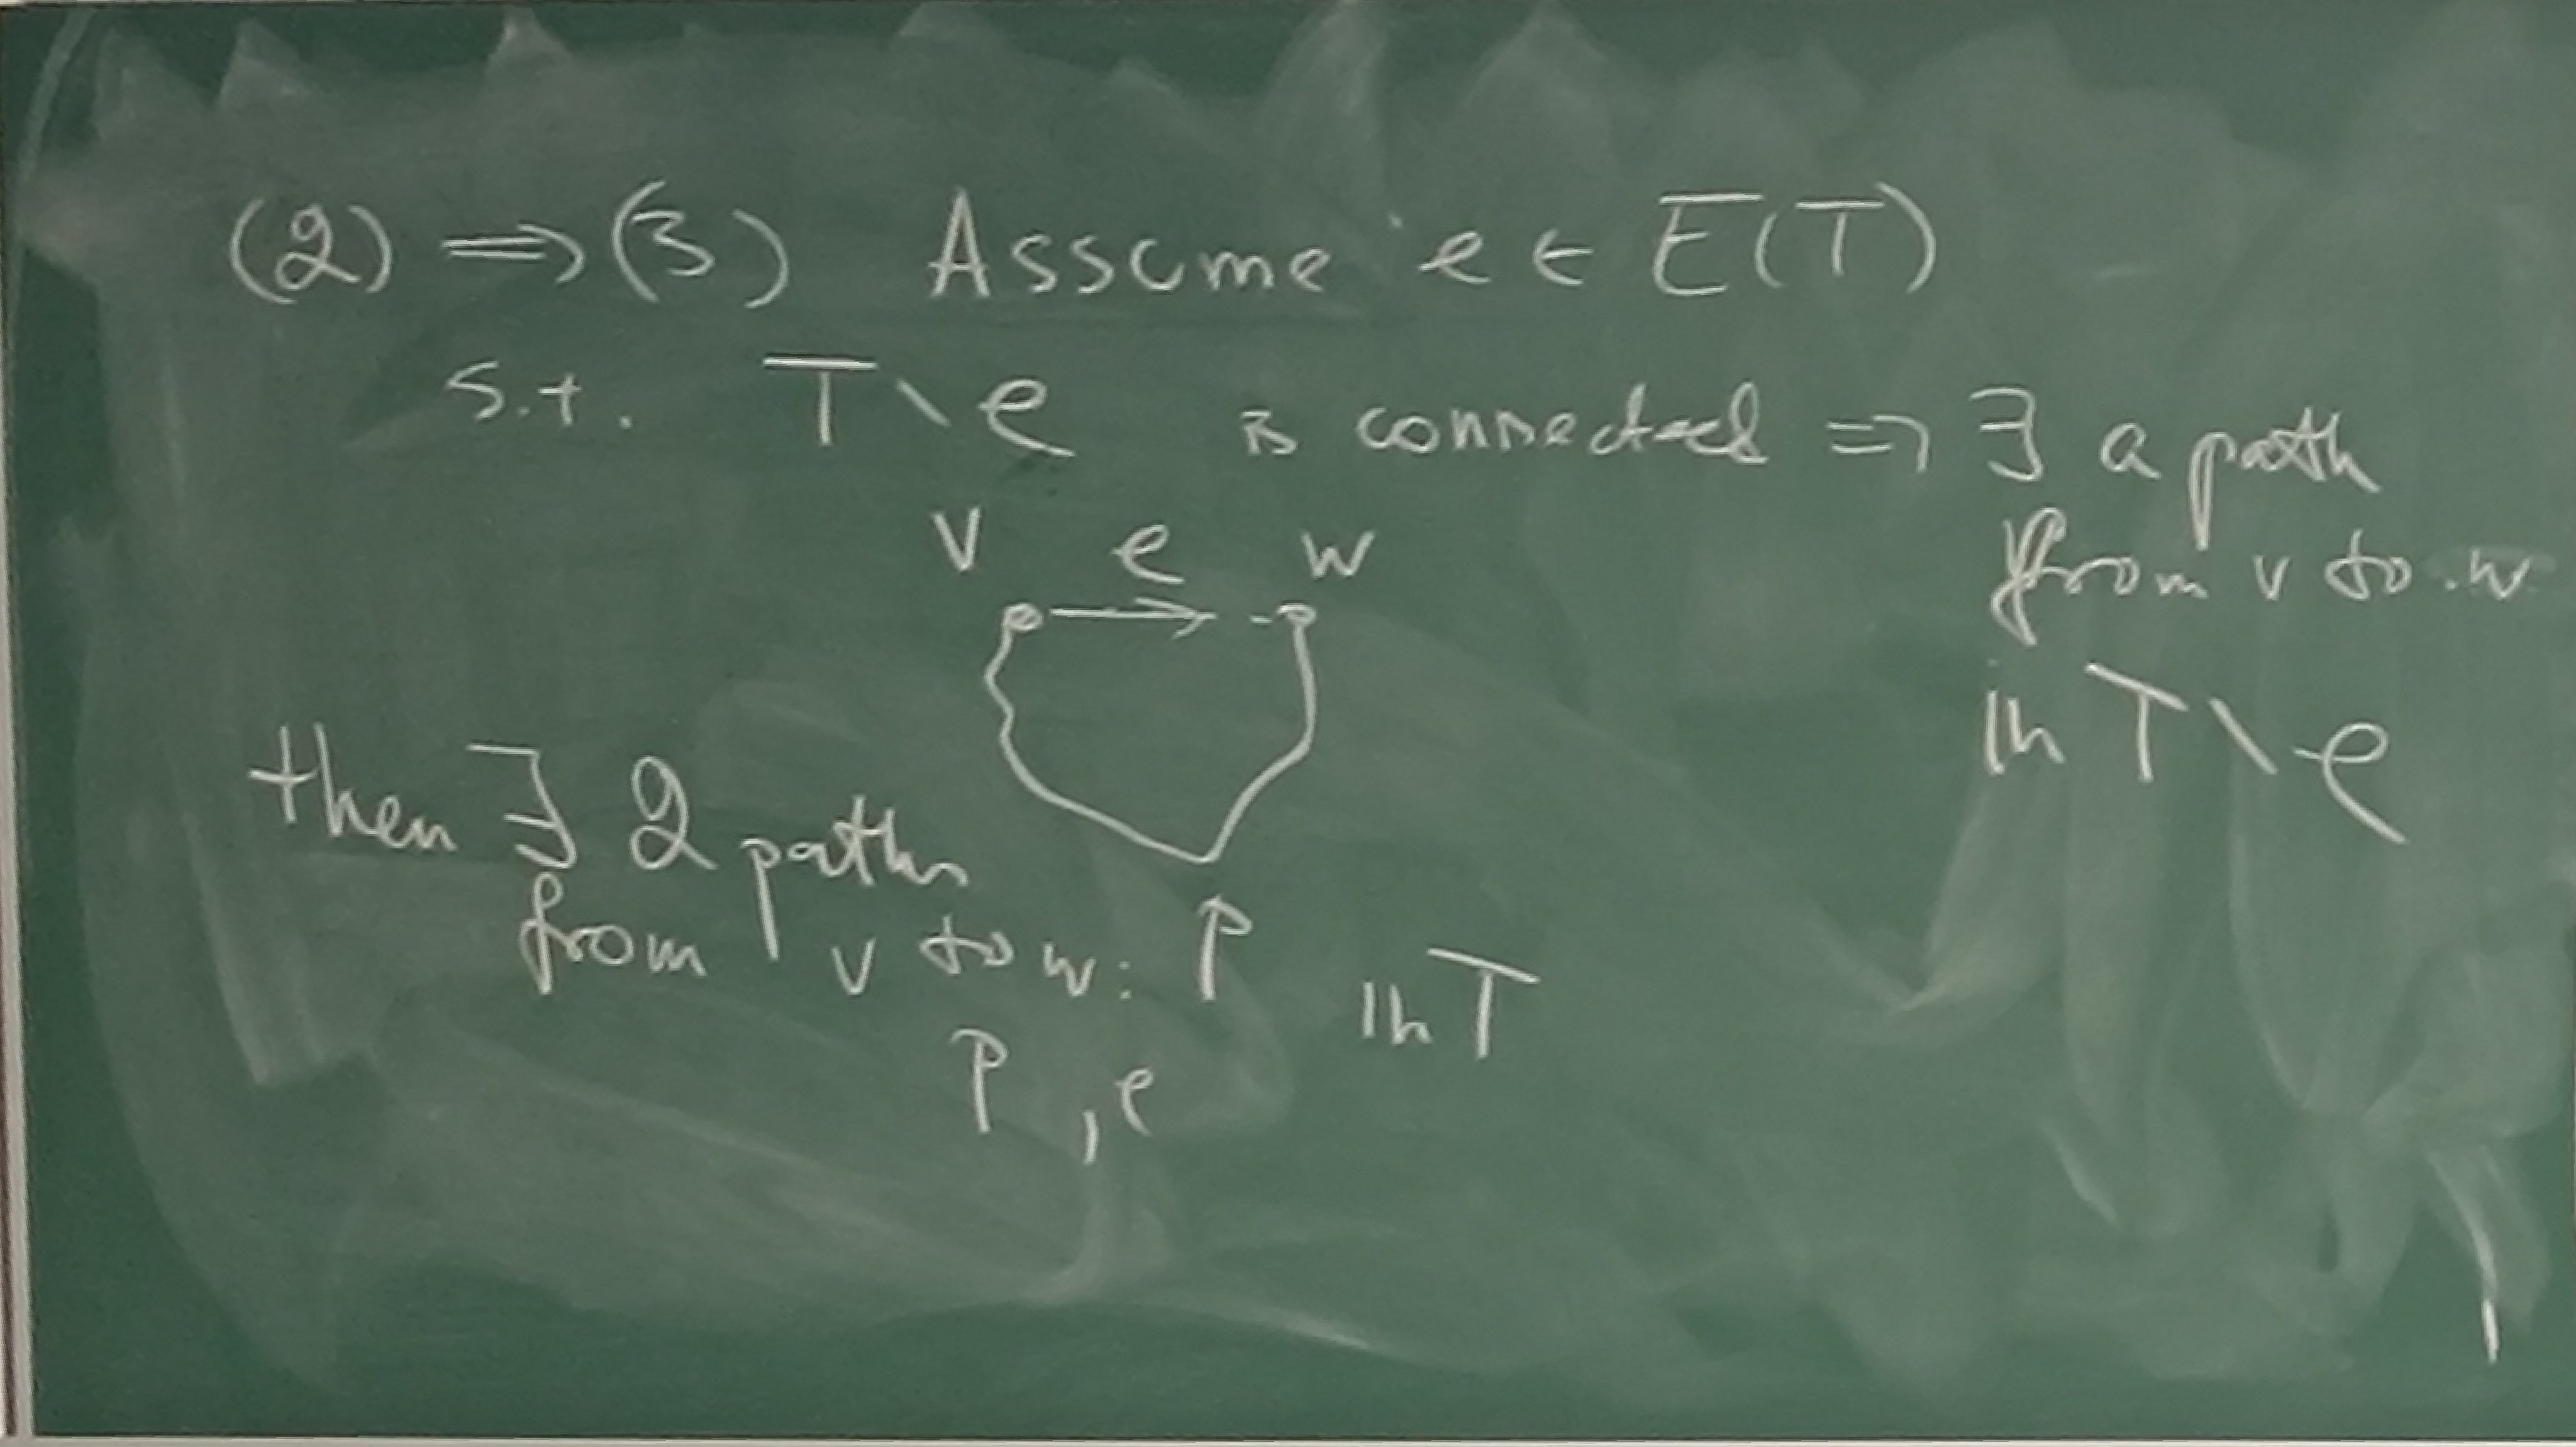 (2) ⟹ (3) Assume e ∈ E(T)
s.t. T \ e is connected ⇒ ∃ a path
from v to w
in T \ e
v e w
then ∃ 2 paths
from v to w:
P, e
P
in T